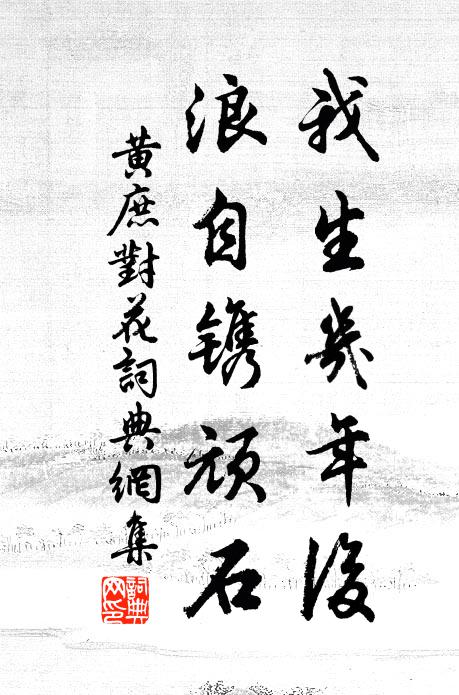 我生幾年後
浪自鐫頑石
黃庶對花詞典網集
詞典网印